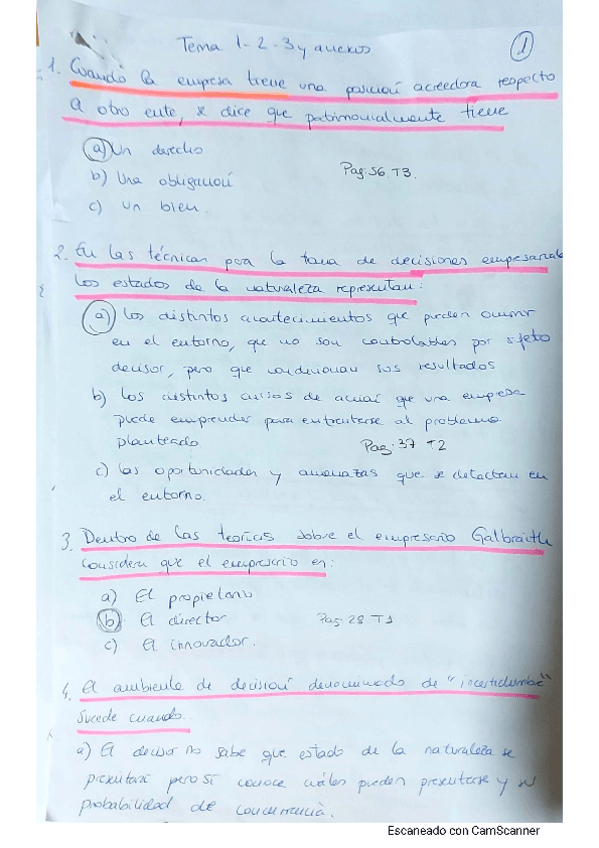 Tema 1-2-3 y anexos
1
1. Cuando la empresa tiene una posición acreedora respecto
a otro ente, se dice que patrimonialmente tiene
a) Un derecho
b) Una obligación
Pag: 56 T3.
c) Un bien.
2. En las técnicas para la toma de decisiones empresariales
los estados de la naturaleza representan:
a) Los distintos acontecimientos que pueden ocurrir
en el entorno, que no son controlados por sujeto
decisor, pero que condicionan sus resultados
b) Los distintos cursos de acción que una empresa
puede emprender para enfrentarse al problema
planteado
Pag: 37 T2
c) las oportunidades y amenazas que se detectan en
el entorno.
3. Dentro de las teorías sobre el empresario Galbraith
considera que el empresario es:
a) El propietario
b) El director
Pag: 28 T1
c) El innovador.
4. El ambiente de decisión denominado de "incertidumbre"
sucede cuando..
a) El decisor no sabe que estado de la naturaleza se
presentará pero sí conoce cuáles pueden presentarse y su
probabilidad de concurrencia.
Escaneado con CamScanner